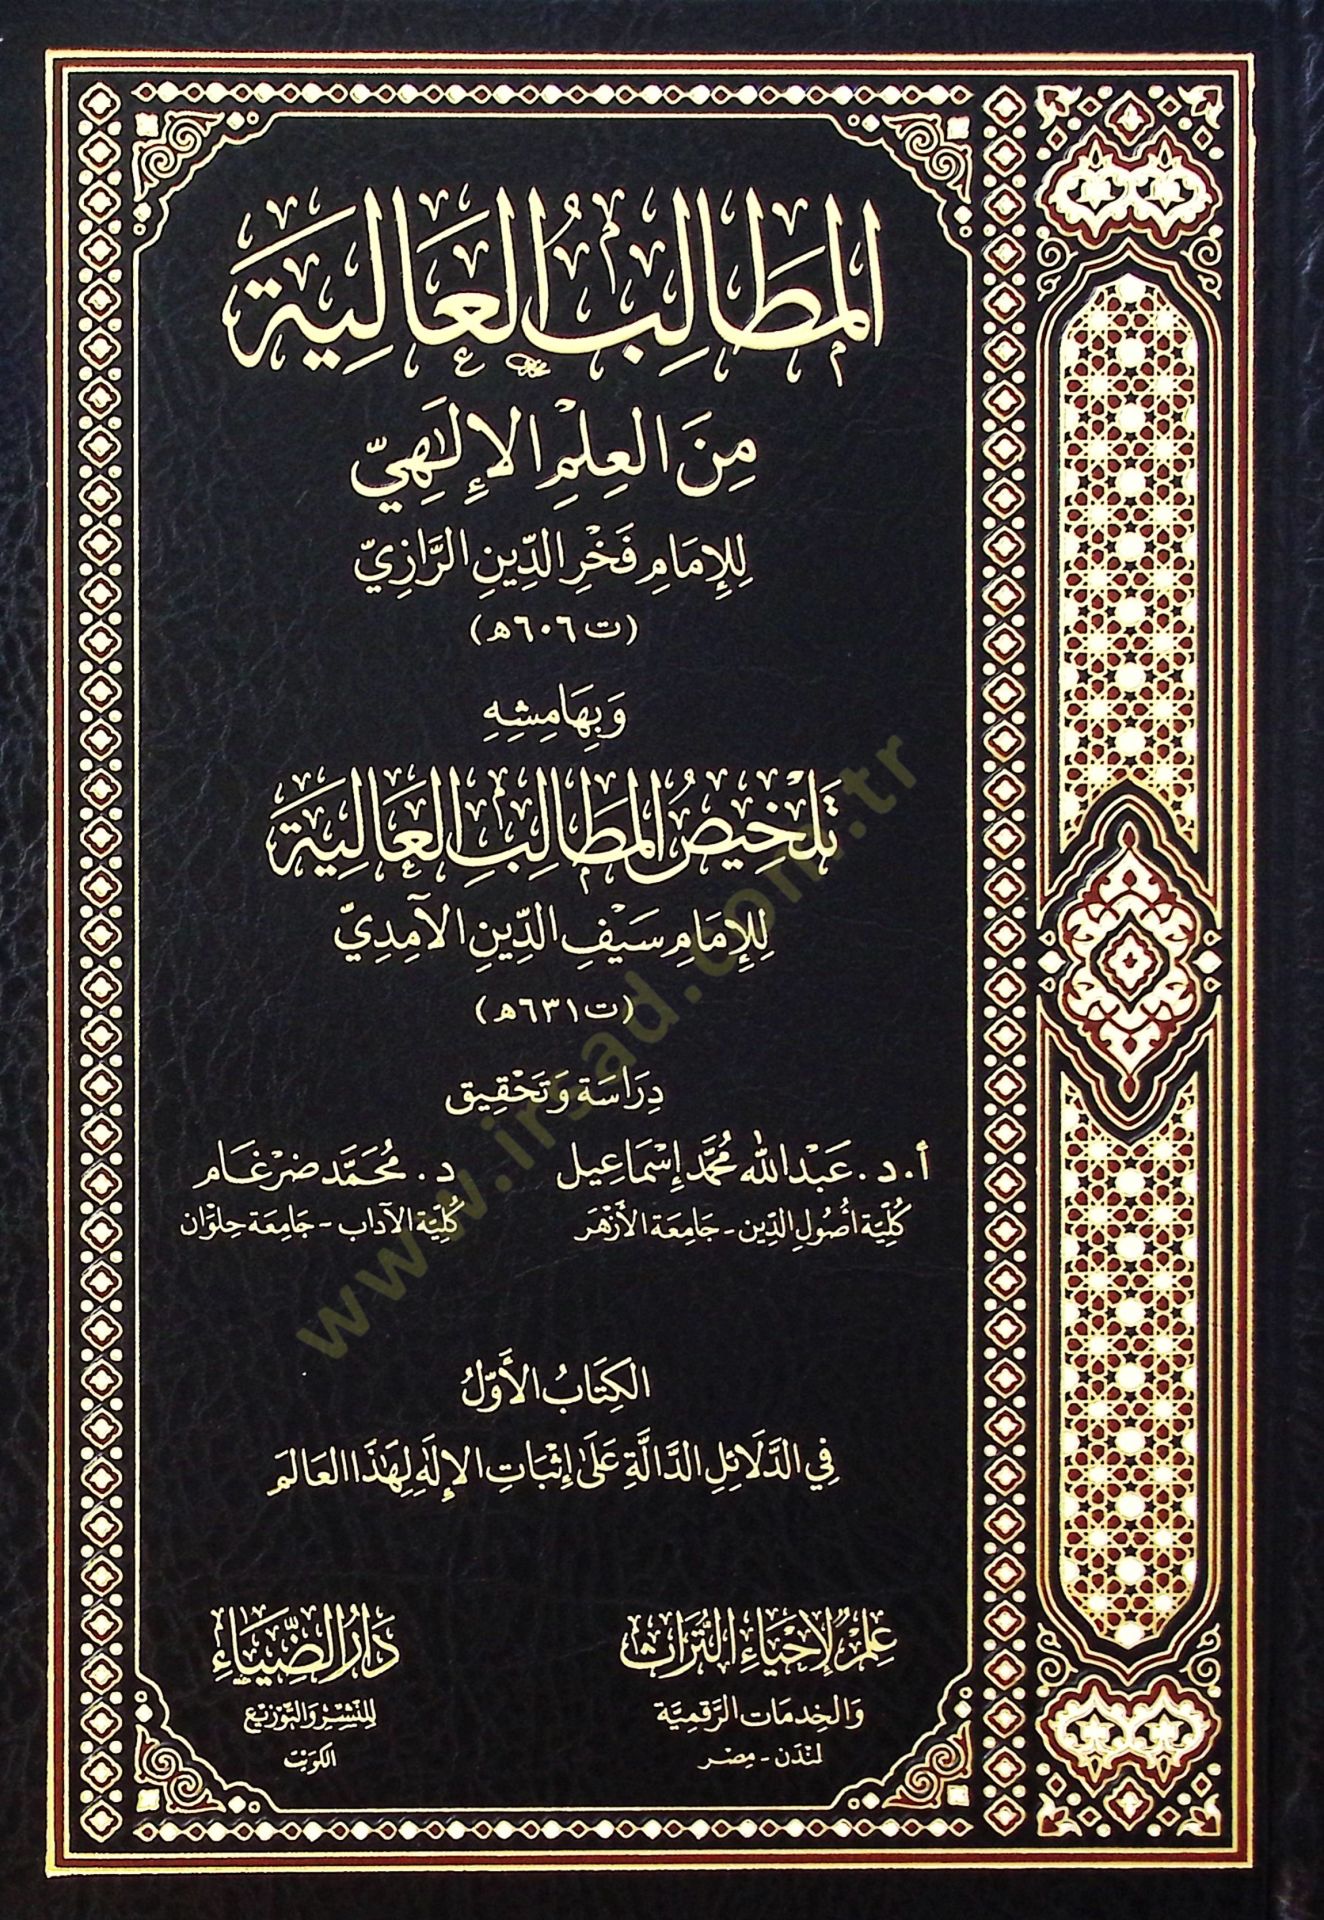 المَطَالِبُ العَالِيَة
مِنَ العِلْمِ الإِلٰهِيّ
لِلإِمَامِ فَخْرِ الدِّينِ الرَّازِيّ
(ت ٦٠٦هـ)
وَبِهَامِشِهِ
تَلْخِيصُ المَطَالِبِ العَالِيَة
لِلإِمَامِ سَيْفِ الدِّينِ الآمِدِيّ
(ت ٦٣١هـ)
دِرَاسَة وَتَحْقِيق
أ. د. عَبْد الله مُحَمَّد إِسْمَاعِيل
كُلِّيَّة أُصُولِ الدِّين - جَامِعَة الأَزْهَر
د. مُحَمَّد ضرْغَام
كُلِّيَّة الآدَاب - جَامِعَة حلْوَان
الكِتَابُ الأَوَّلُ
فِي الدَّلَائِلِ الدَّالَّةِ عَلَى إِثْبَاتِ الإِلٰهِ لِهَذَا العَالَم
عِلْم لِإِحْيَاءِ التُّرَاث
وَالخِدمَات الرَّقمِيَّة
لندَن - مِصْر
دَارُ الضِّيَاءِ
لِلنَّشْرِ وَالتَّوْزِيْعِ
الكويت
www.irsad.com.tr